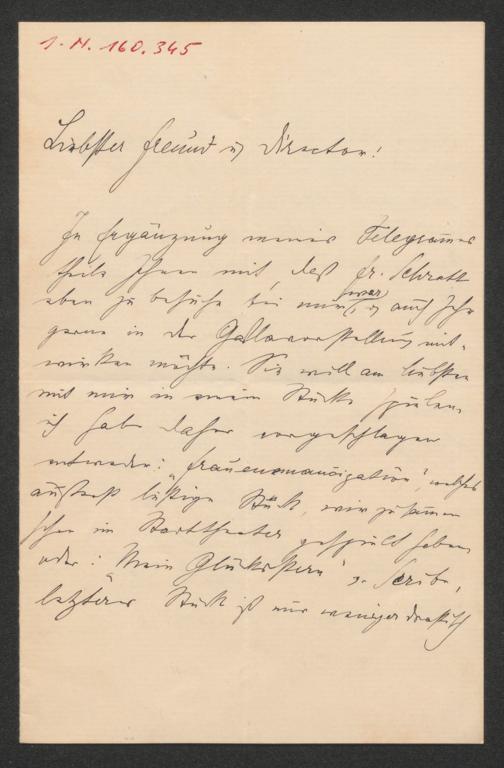 I. N. 160.345
Liebster Freund u Director!
In Ergänzung meines Telegrammes
theile Ihnen mit, daß Fr. Schratt
eben zu Besuche bei mir war, u auch sehr
gerne in der Gallavorstellung mit-
wirken möchte. Sie will am liebsten
mit mir in einem Stücke spielen,
ich habe daher vorgeschlagen
entweder: „Frauenemancipation", welches
äußerst lustige Stück, wir zusammen
schon im Stadttheater gespielt haben
oder: „Mein Glücksstern" v. Scribe,
letzteres Stück ist nur weniger drastisch